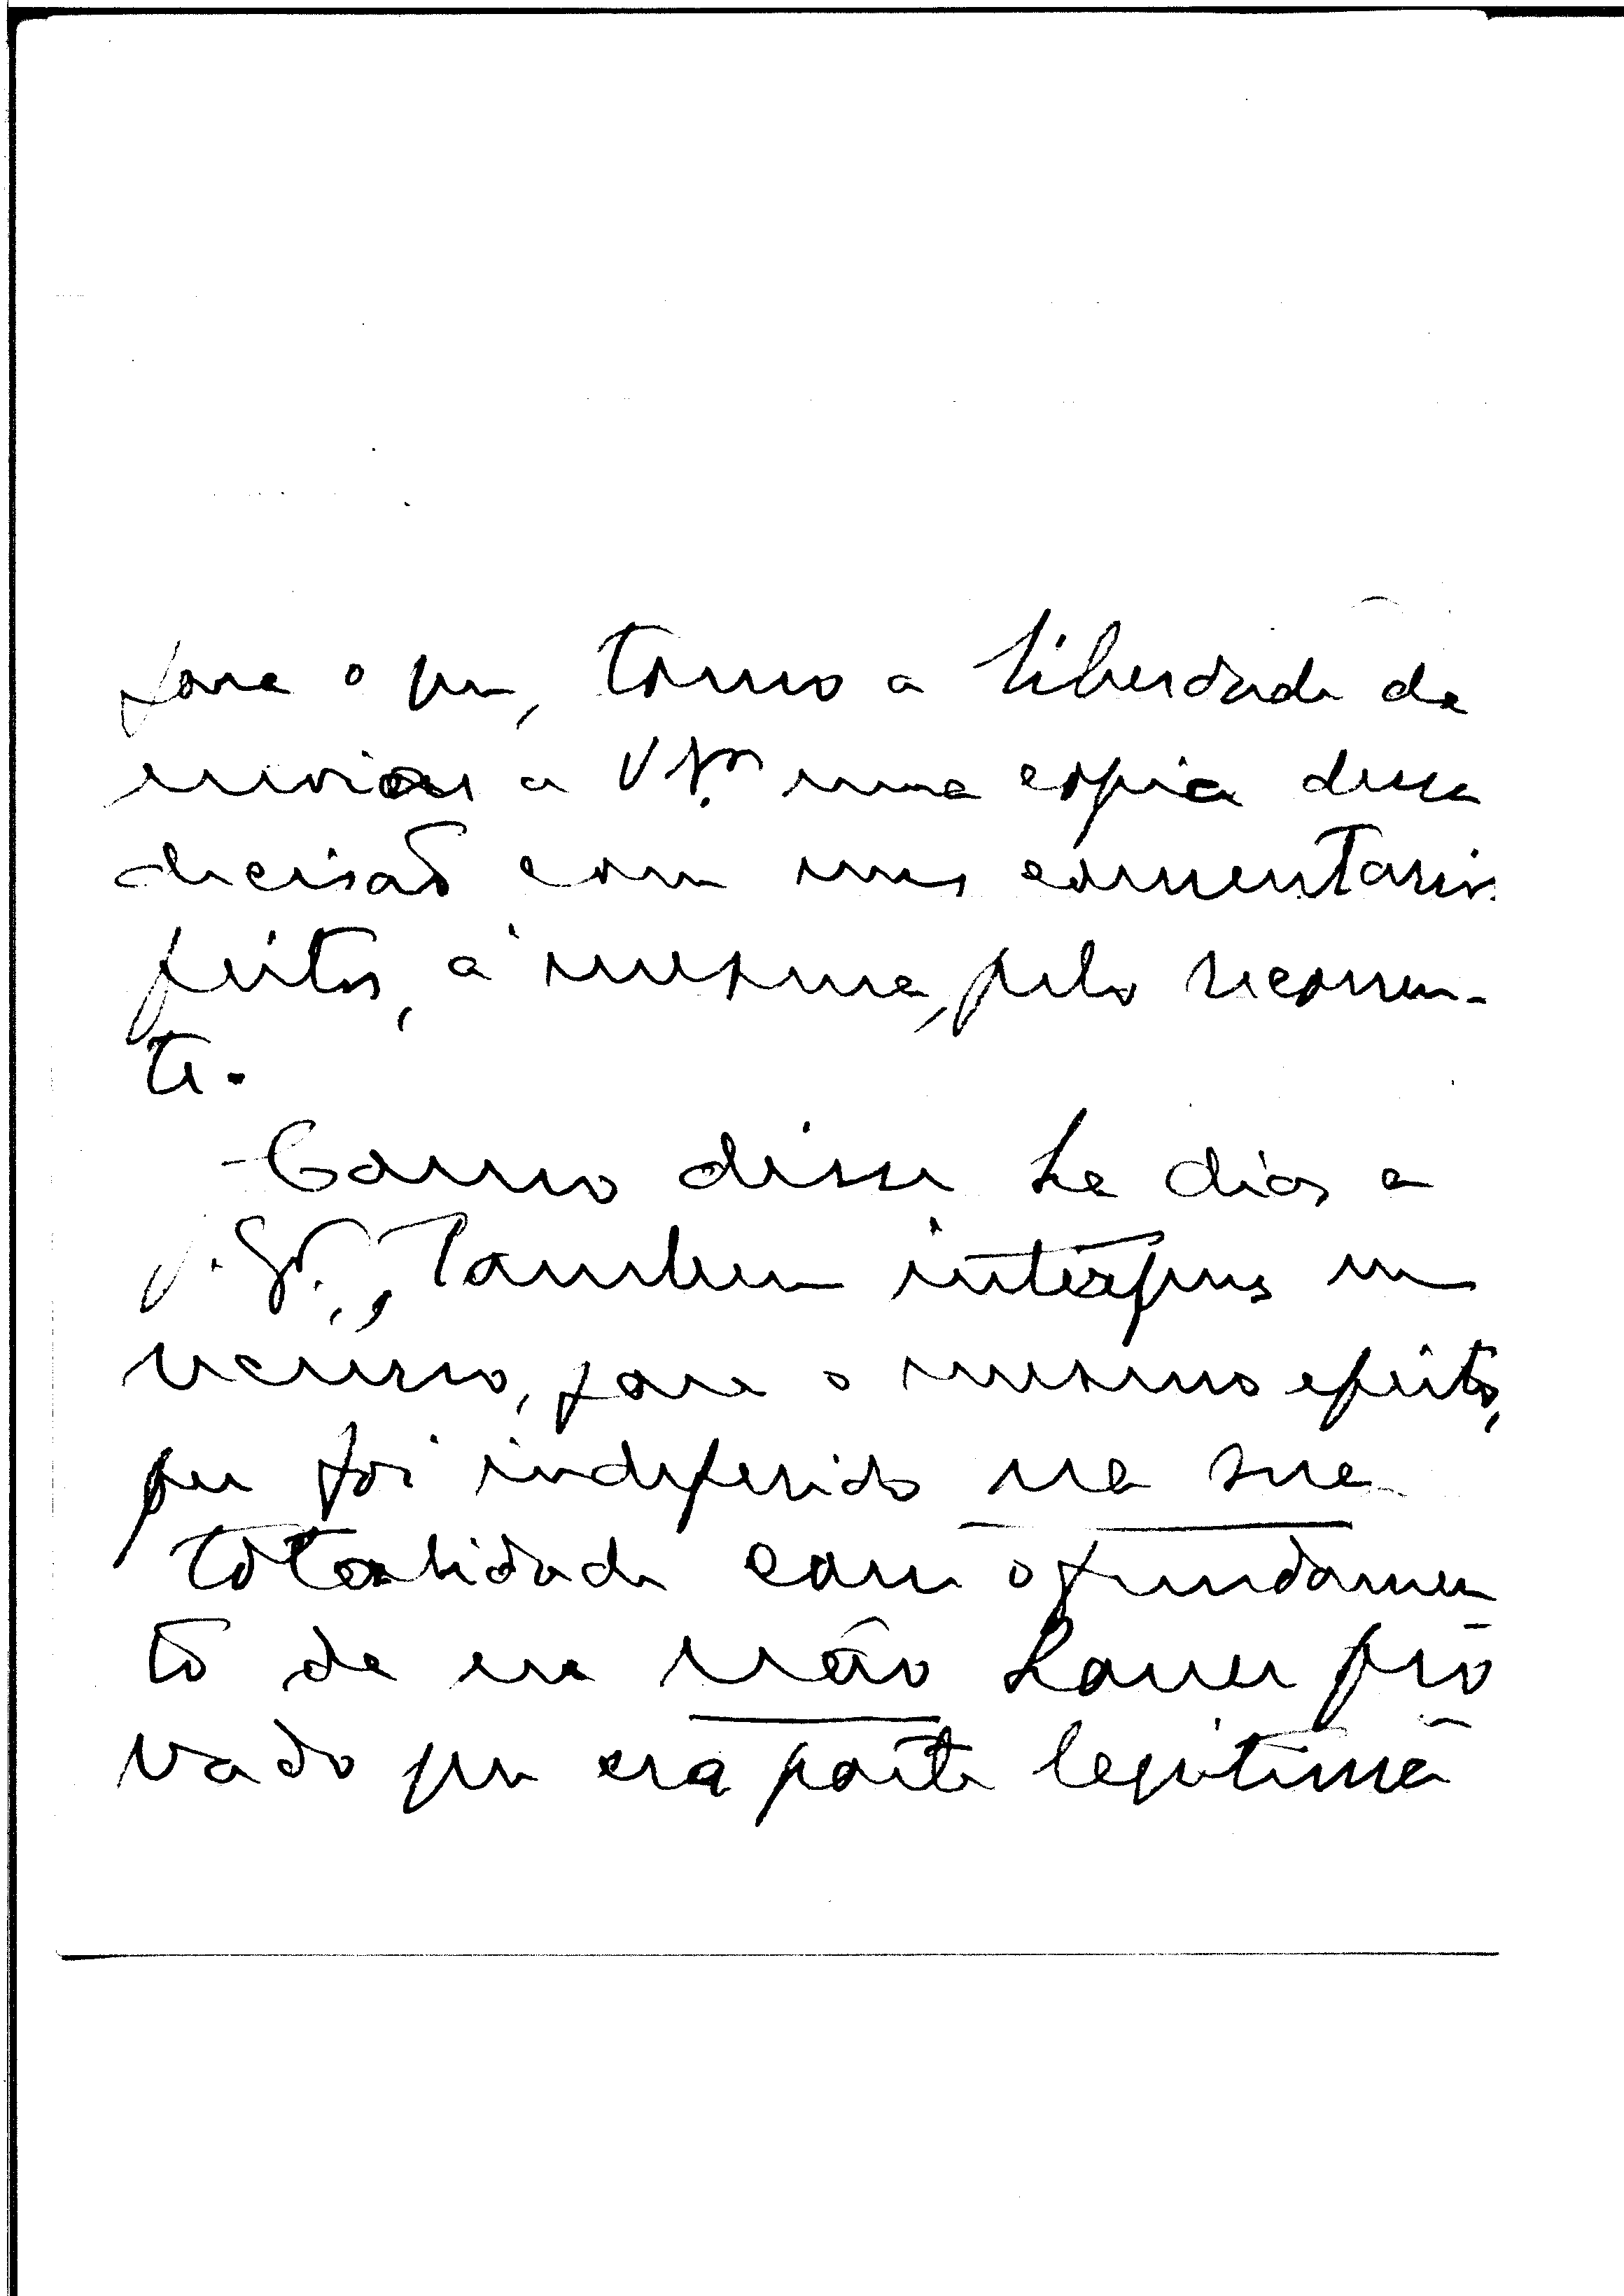 para o que, tomo a liberdade de
enviar a V. Sr. uma copia dessa
decisão com uns comentarios
feitos, á mesma, pelo recorren-
te.
- Como disse ha dias a
V. Sr., tambem interpus um
recurso, para o mesmo efeito,
que foi indeferido na sua
totalidade com o fundamen
to de eu não haver pro
vado que era parte legitima